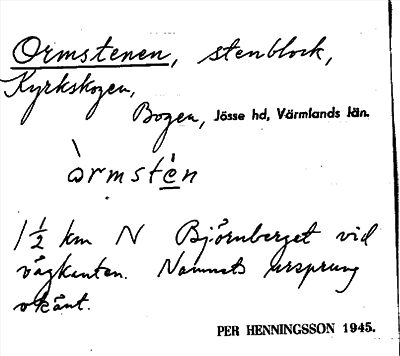 Ormstenen, stenblock,
Kyrkskogen,
Bogen, Jösse hd, Värmlands län.
òrmstèn
1 1/2 km N Björnberget vid
vägkanten. Namnets ursprung
okänt.
PER HENNINGSSON 1945.